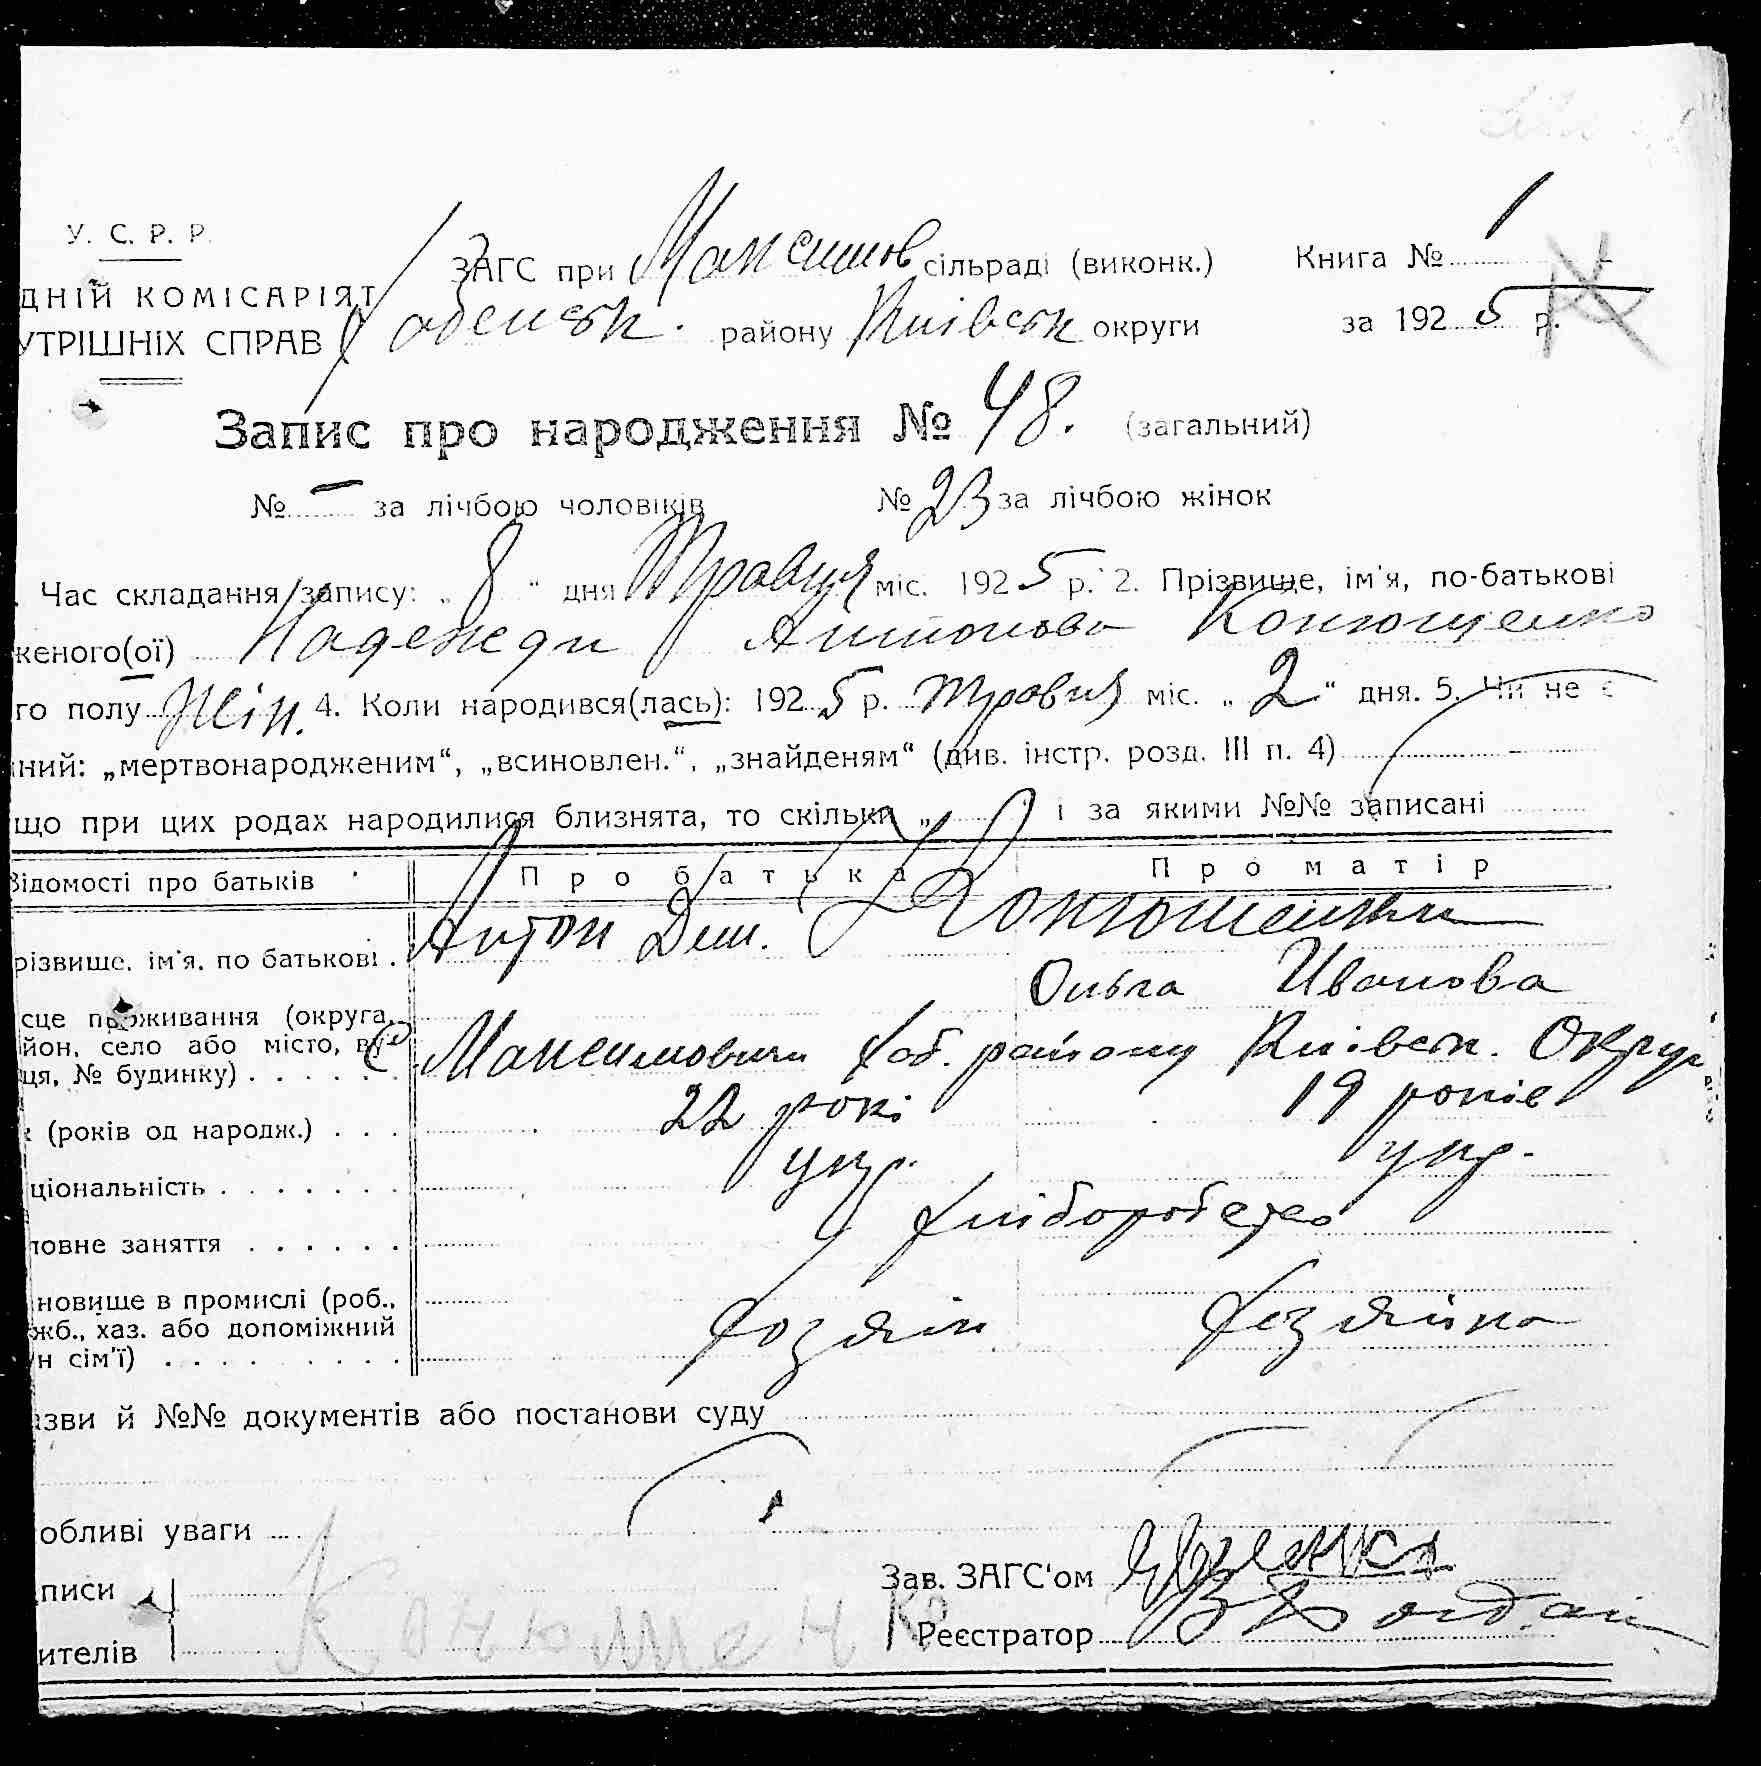 У. С. Р. Р.
ДНІЙ КОМІСАРІЯТ
УТРІШНІХ СПРАВ
ЗАГС при Максимов сільраді (виконк.) Книга № 1
Хабенськ. району Київськ округи за 192 5 р.
Запис про народження № 48. (загальний)
№ — за лічбою чоловіків № 23 за лічбою жінок
. Час складання запису: „ 8 “ дня Травця міс. 192 5 р. 2. Прізвище, ім'я, по-батькові
женого(ої) Надежди Антонова Конющенко
го полу Жін. 4. Коли народився(лась): 192 5 р. травця міс. „ 2 “ дня. 5. Чи не є
ний: „мертвонародженим“, „всиновлен.“, „знайденям“ (див. інстр. розд. III п. 4)
що при цих родах народилися близнята, то скільки „ і за якими №№ записані
Відомості про батьків Про батька Про матір
різвище, ім'я, по батькові . Антон Дем. Конюшенки
Ольга Иванова
сце проживання (округа,
йон, село або місто, ву
ця, № будинку) . . . . . . С Максимовичи Хаб. району Київськ. Округи
(років од народж.) . . . 22 рокі 19 років
ціональність . . . . . . . укр. укр.
ловне заняття . . . . . . хліборобство
новище в промислі (роб.,
жб., хаз. або допоміжний
н сім'ї) . . . . . . . . . Хозяін Хозяйка
зви й №№ документів або постанови суду
обливі уваги
Зав. ЗАГС'ом
писи
Конюшенко
Реєстратор
ителів